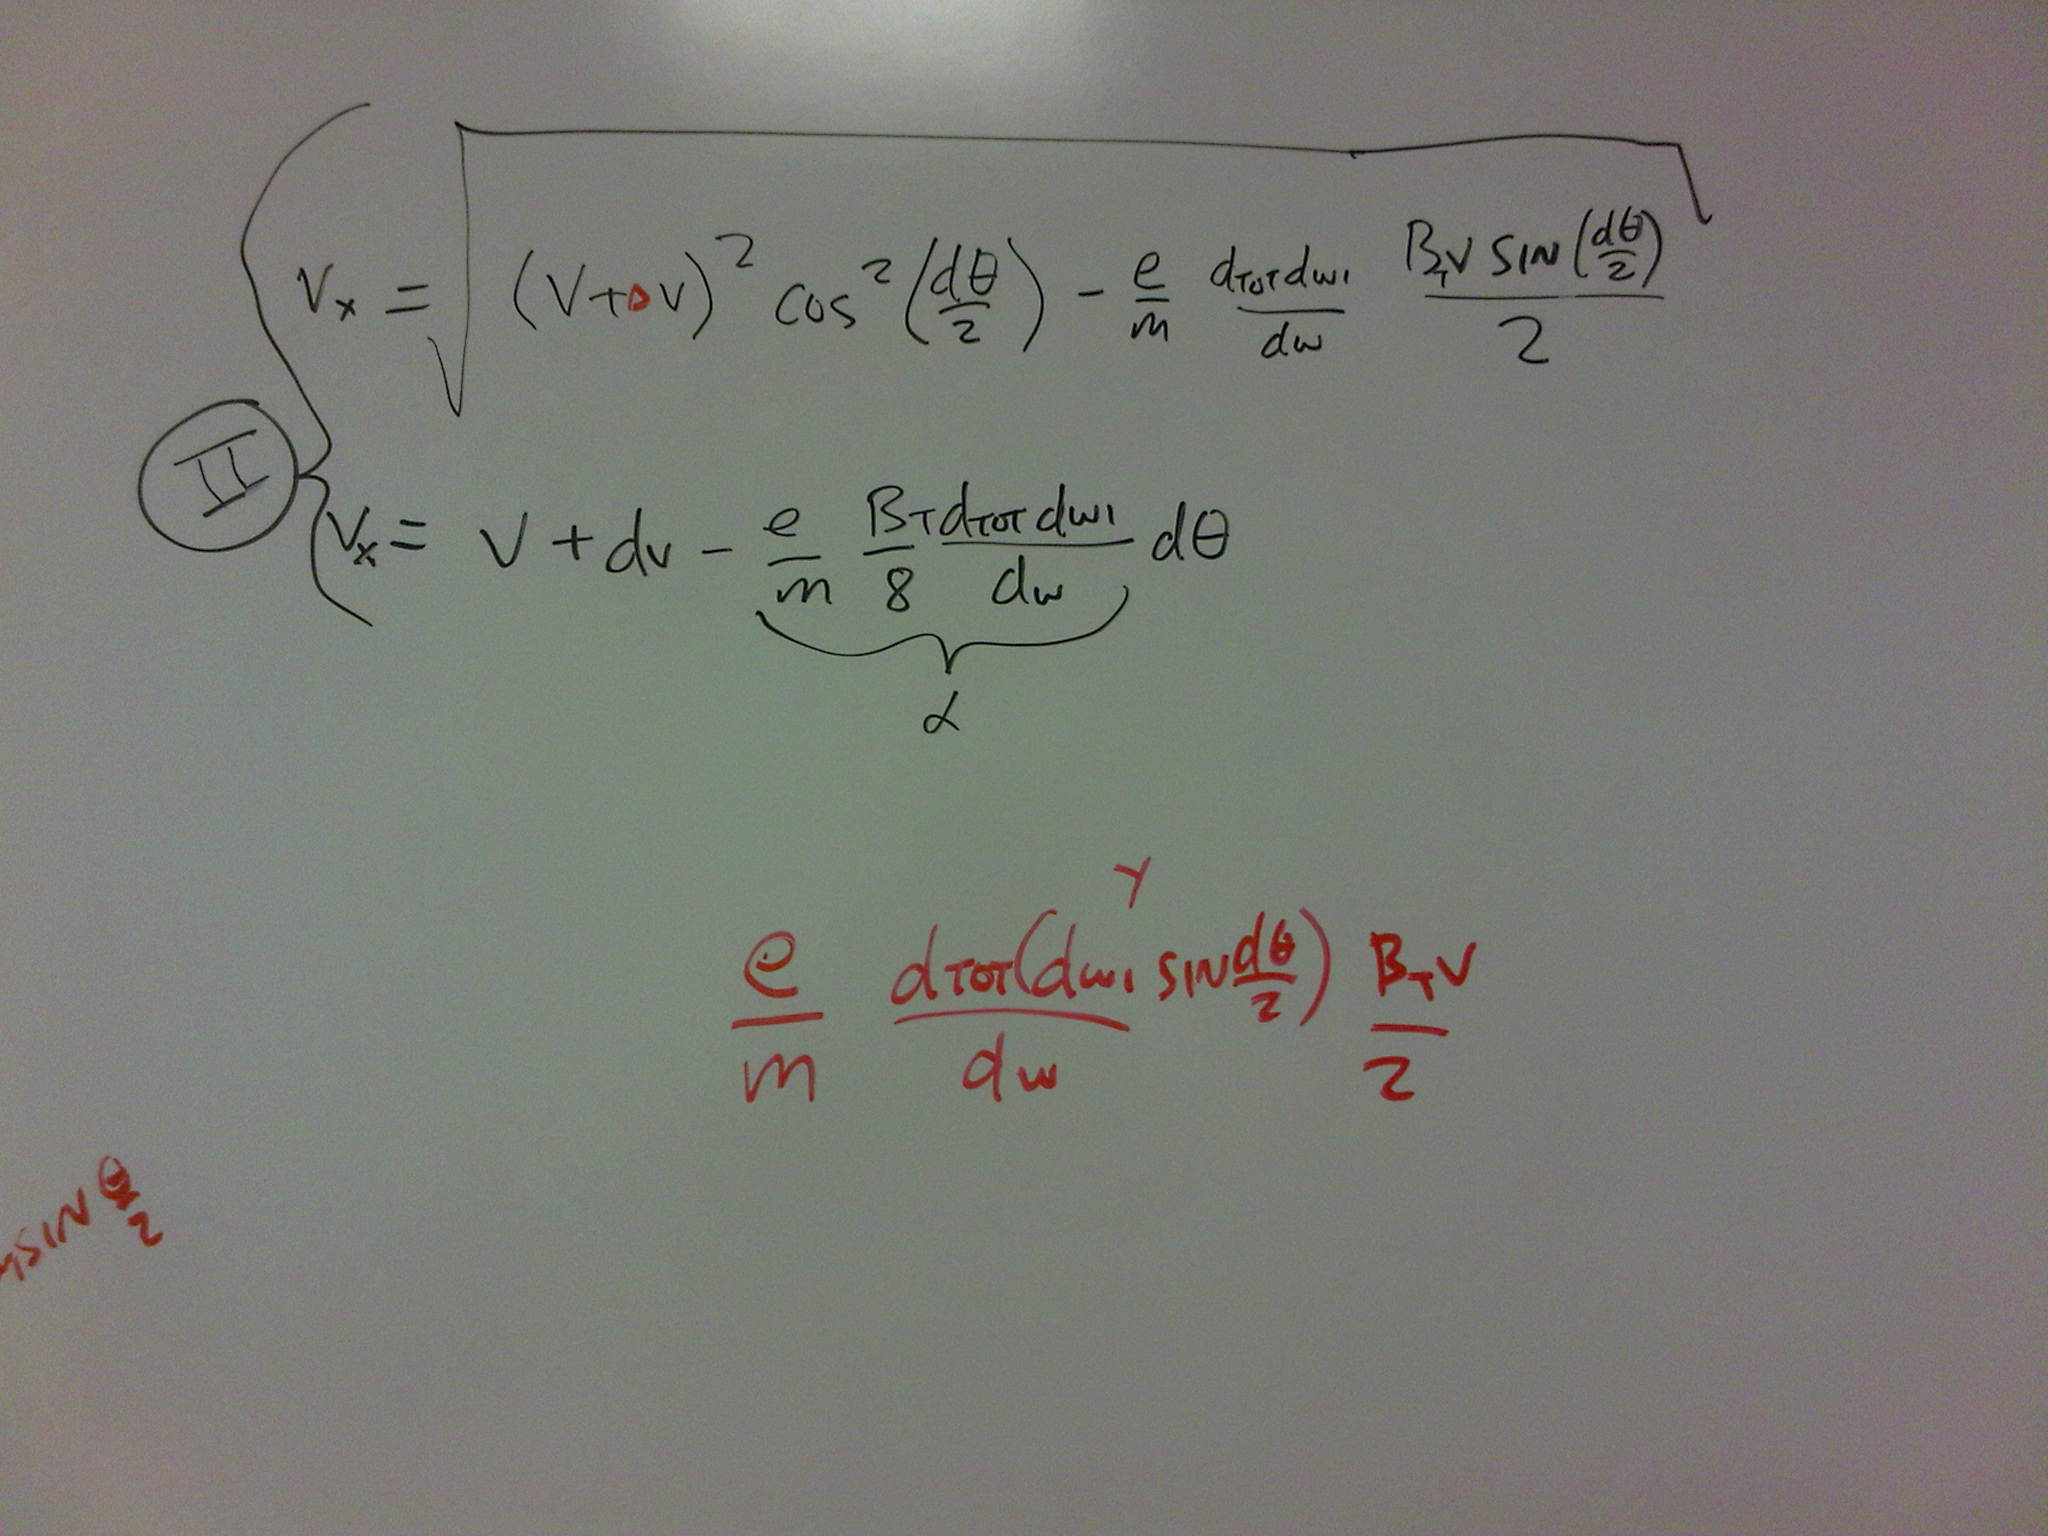 Vx = √((V+ΔV)² cos²(dθ/2) - e/m dTOTdw1/dw BTV SIN(dθ/2)/2)
II
Vx = V + dv - e/m BT/8 dTOTdw1/dw dθ
α
Y
e/m dTOT(dw1 SIN dθ/2)/dw BTV/2
SIN θ/2